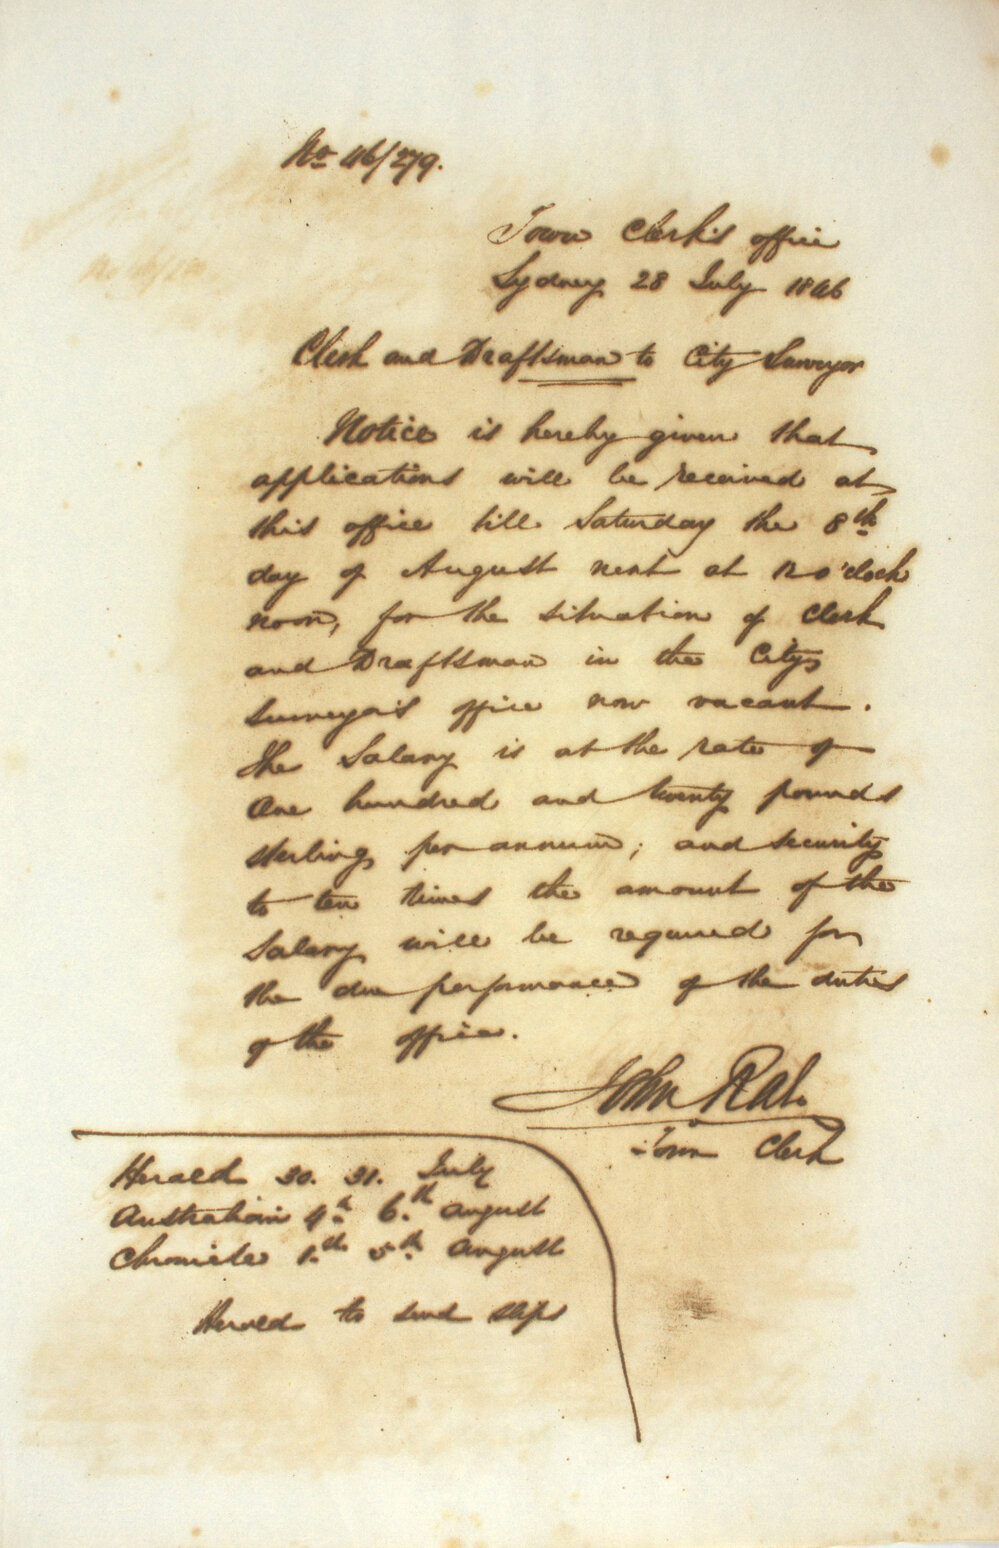 No 46/279.
Town Clerk's office
Sydney 28 July 1846
Clerk and Draftsman to City Surveyor
Notice is hereby given that
applications will be received at
this office till Saturday the 8th
day of August next at 12 o'clock
noon, for the situation of Clerk
and Draftsman in the City
Surveyor's office now vacant.
The Salary is at the rate of
One hundred and twenty pounds
sterling per annum; and security
to ten times the amount of the
Salary will be required for
the due performance of the duties
of the office.
John Rae
Town Clerk
Herald 30. 31. July
Australian 4th 6th August
Chronicle 1st 5th August
Herald to send slips